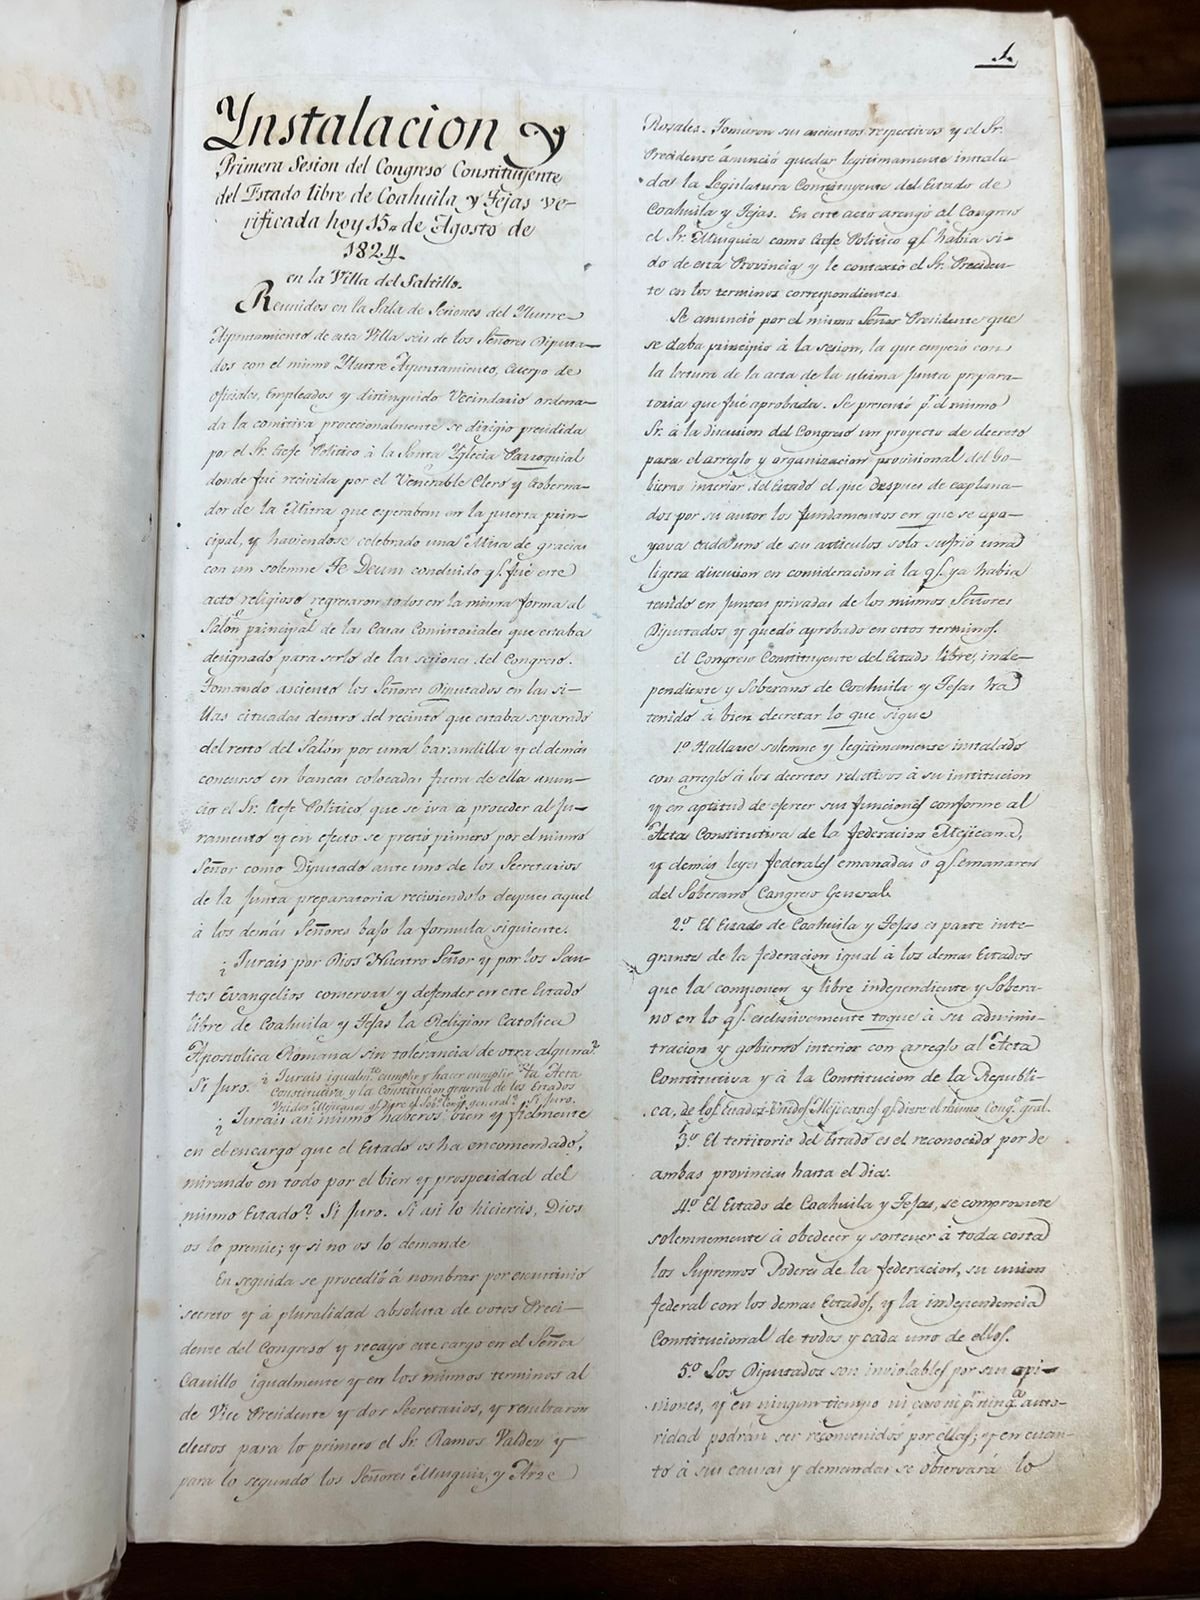 1.
Ynstalacion y
Primera Sesion del Congreso Constituyente
del Estado libre de Coahuila y Tejas ve-
rificada hoy 15 de Agosto de
1824.
en la Villa del Saltillo.
Reunidos en la Sala de Sesiones del Ylustre
Ayuntamiento de esta Villa seis de los Señores Diputa-
dos con el mismo Ylustre Ayuntamiento, Cuerpo de
oficiales, Empleados y distinguido Vecindario ordena-
da la comitiva procecionalmente se dirigio precidida
por el Sr. Gefe Politico à la Santa Yglecia Parroquial
donde fué recivida por el Venerable Clero y Goberna-
dor de la Mitra que esperaban en la puerta prin-
cipal, y haviendose celebrado una Misa de gracias
con un solemne Te Deum concluido q.e fué este
acto religioso regresaron todos en la misma forma al
Salón principal de las Casas Consistoriales que estaba
designado para serlo de las sesiones del Congreso.
Tomando asciento los Señores Diputados en las si-
llas cituadas dentro del recinto que estaba separado
del resto del Salón por una barandilla y el demás
concurso en bancas colocadas fuera de ella anun-
ció el Sr. Gefe Politico, que se iva a proceder al Ju-
ramento y en efecto se prestó primero por el mismo
Señor como Diputado ante uno de los Secretarios
de la Junta preparatoria reciviendolo despues aquel
à los demás Señores bajo la formula siguiente.
¿Jurais por Dios Nuestro Señor y por los San-
tos Evangelios conservar y defender en este Estado
libre de Coahuila y Tejas la Religion Catolica
Apostolica Romana sin tolerancia de otra alguna?
Si Juro. ¿Jurais igualm.te cumplir y hacer cumplir la Acta
Constitutiva y la Constitucion general de los Estados
Unidos Mejicanos q.e diere el Sob.o Cong.o general? Si Juro.
¿Jurais asi mismo haberos bien y fielmente
en el encargo que el Estado os ha encomendado,
mirando en todo por el bien y prosperidad del
mismo Estado? Si Juro. Si asi lo hiciereis, Dios
os lo premie; y si no os lo demande
En seguida se procedió á nombrar por escrutinio
secreto y á pluralidad absoluta de votos Preci-
dente del Congreso y recayó este cargo en el Señor
Carrillo igualmente y en los mismos terminos al
de Vice Presidente y dos Secretarios, y resultaron
electos para lo primero el Sr. Ramos Valdez y
para lo segundo los Señores Musquiz, y Arze
Rosales. Tomaron sus ascientos respectivos y el Sr.
Precidente anunció quedar legitimamente instala-
da la Legislatura Constituyente del Estado de
Coahuila y Tejas. En este acto arengó al Congreso
el Sr. Musquiz como Gefe Politico q.e habia si-
do de esta Provincia y le contextó el Sr. Preciden-
te en los terminos correspondientes.
Se anunció por el mismo Señor Presidente que
se daba principio à la sesion, la que empezó con
la lectura de la acta de la ultima Junta prepara-
toria que fué aprobada. Se presentó p.r el mismo
Sr. à la discusion del Congreso un proyecto de decreto
para el arreglo y organizacion provisional del Go-
bierno interior del Estado el que despues de esplana-
dos por su autor los fundamentos en que se apo-
yava cada uno de sus articulos solo sufrió una
ligera discusion en consideracion à la q.e ya habia
tenido en Juntas privadas de los mismos Señores
Diputados y quedó aprobado en estos terminos.
El Congreso Constituyente del Estado libre, inde-
pendiente y Soberano de Coahuila y Tejas ha
tenido á bien decretar lo que sigue
1.o Hallarse solemne y legitimamente instalado
con arreglo á los decretos relativos à su institucion
y en aptitud de ejercer sus funciones conforme al
Acta Constitutiva de la federacion Mejicana,
y demás leyes federales emanadas ó q.e emanaren
del Soberano Congreso General.
2.o El Estado de Coahuila y Tejas es parte inte-
grante de la federacion igual á los demas Estados
que la componen y libre independiente y Sobera-
no en lo q.e esclusivamente toque à su adminis-
tracion y gobierno interior con arreglo al Acta
Constitutiva y à la Constitucion de la Republi-
ca, de los Estados-Unidos Mejicanos q.e diere el mismo Cong.o gral.
3.o El territorio del Estado es el reconocido por de
ambas provincias hasta el dia.
4.o El Estado de Coahuila y Tejas, se compromete
solemnemente à obedecer y sostener à toda costa
los Supremos Poderes de la federacion, su union
federal con los demas Estados, y la independencia
Constitucional de todos y cada uno de ellos.
5.o Los Diputados son inviolables por sus opi-
niones, y en ningun tiempo ni caso ni p.r ning.a auto-
ridad podrán ser reconvenidos por ellas; y en cuan-
to à sus causas y demandas se observará lo